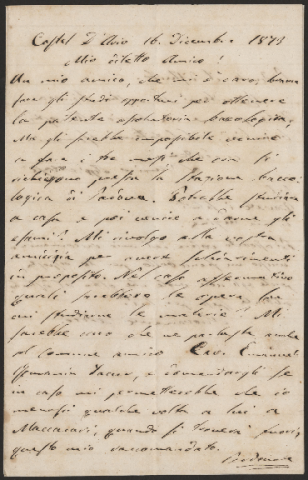 Castel d'Ario 16. Dicembre 1873
Mio diletto Amico!
Un mio amico, che mi è caro, brama
fare gli studi opportuni per ottenere
la patente bacologica,
Ma gli sarebbe impossibile venire
a fare i tre mesi che si
richieggono presso la Stazione baco-
logica di Padova. Potrebbe studiare
a casa e poi venire a darne gli
esami? Mi rivolgo alla vostra
amicizia per avere schiarimenti
in proposito. Nel caso affermativo
quali sarebbero le opere su
cui studiare le materie? Mi
sarebbe caro che ne parlaste anche
al comune amico Cav.
e domandargli se
in caso mi permetterebbe che io
menassi qualche volta a lui a
quando si trova fuori,
questo mio raccomandato.